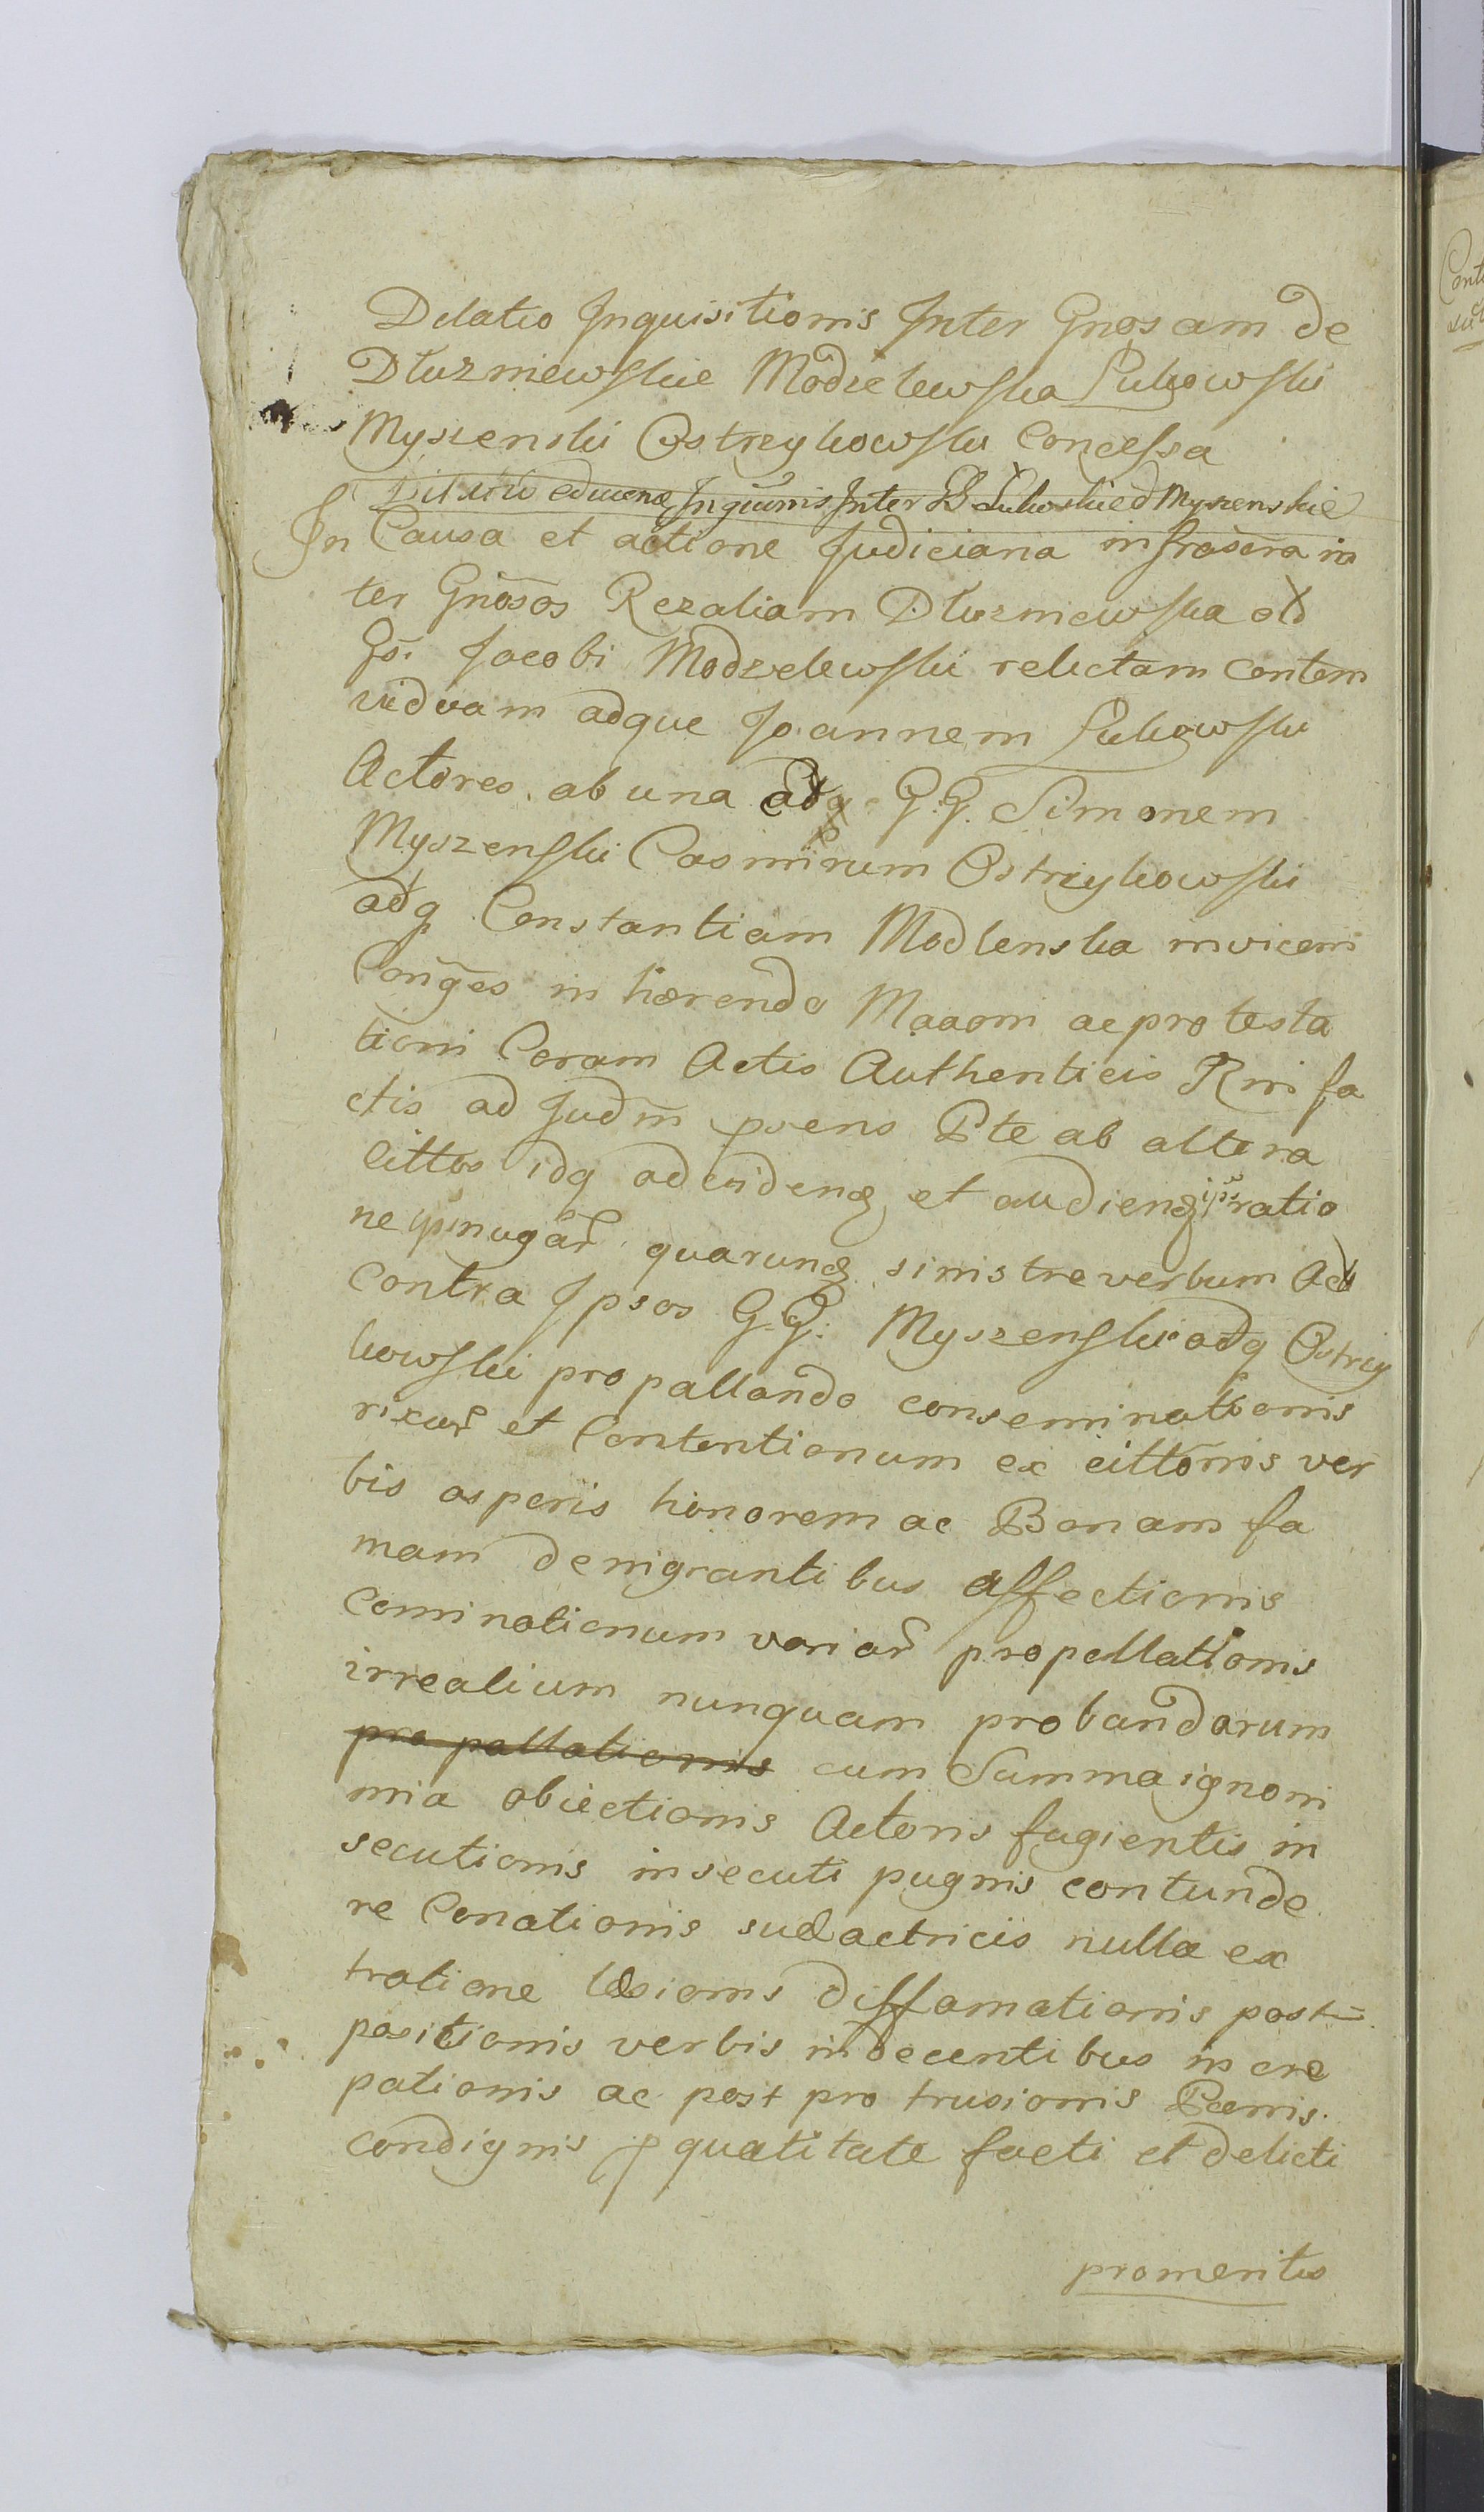 Delatio Inquisitionis Inter Gnosam de
Dłuzniewskie Modzelewska Łukowski
Myszenski Ostrzykowski Concessa
educenae Inquionis Inter GG Łukowskie et Myszenskie
In Causa et actione Judiciaria infrascra in
ter Gnosos Rozaliam Dłuzniewska olo
Goi Jacobi Modzelewski relictam Contem
viduam adque Joannem Łukowski
Actores ab una adq G.G. Simonem
Myszenski Casmirum Ostrzykowski
adq Constantiam Modlenska invicem
Conges in hærendo Maaoni ac protesta
tioni Coram Actis Authenticis Rni fa
ctis ad Judm psens Pte ab altera
Cittos idq ad evidend et audiend ratio
ne quarund sinistre verbum Act
contra Ipsos G.G. Myszenski adq Ostrzy
kowski propallando conseminationis
rixar et Contentionum ex cittonis ver
bis asperis honorem ac Bonam fa
mam denigrantibus affectionis
Cominationum variar propellationis
irrealium nunquam probandorum
propallationis cum Summa ignomi
nia obiectionis Actoris fugientis in
secutionis insecuti pugnis contunde
re Conationis suæ actricis nulla ex
tratione læsionis diffamationis post
positionis verbis indecentibus in cre
pationis ac post pro trusionis Pœnis
condignis p qualitate facti et delicti
promeritis
Cont